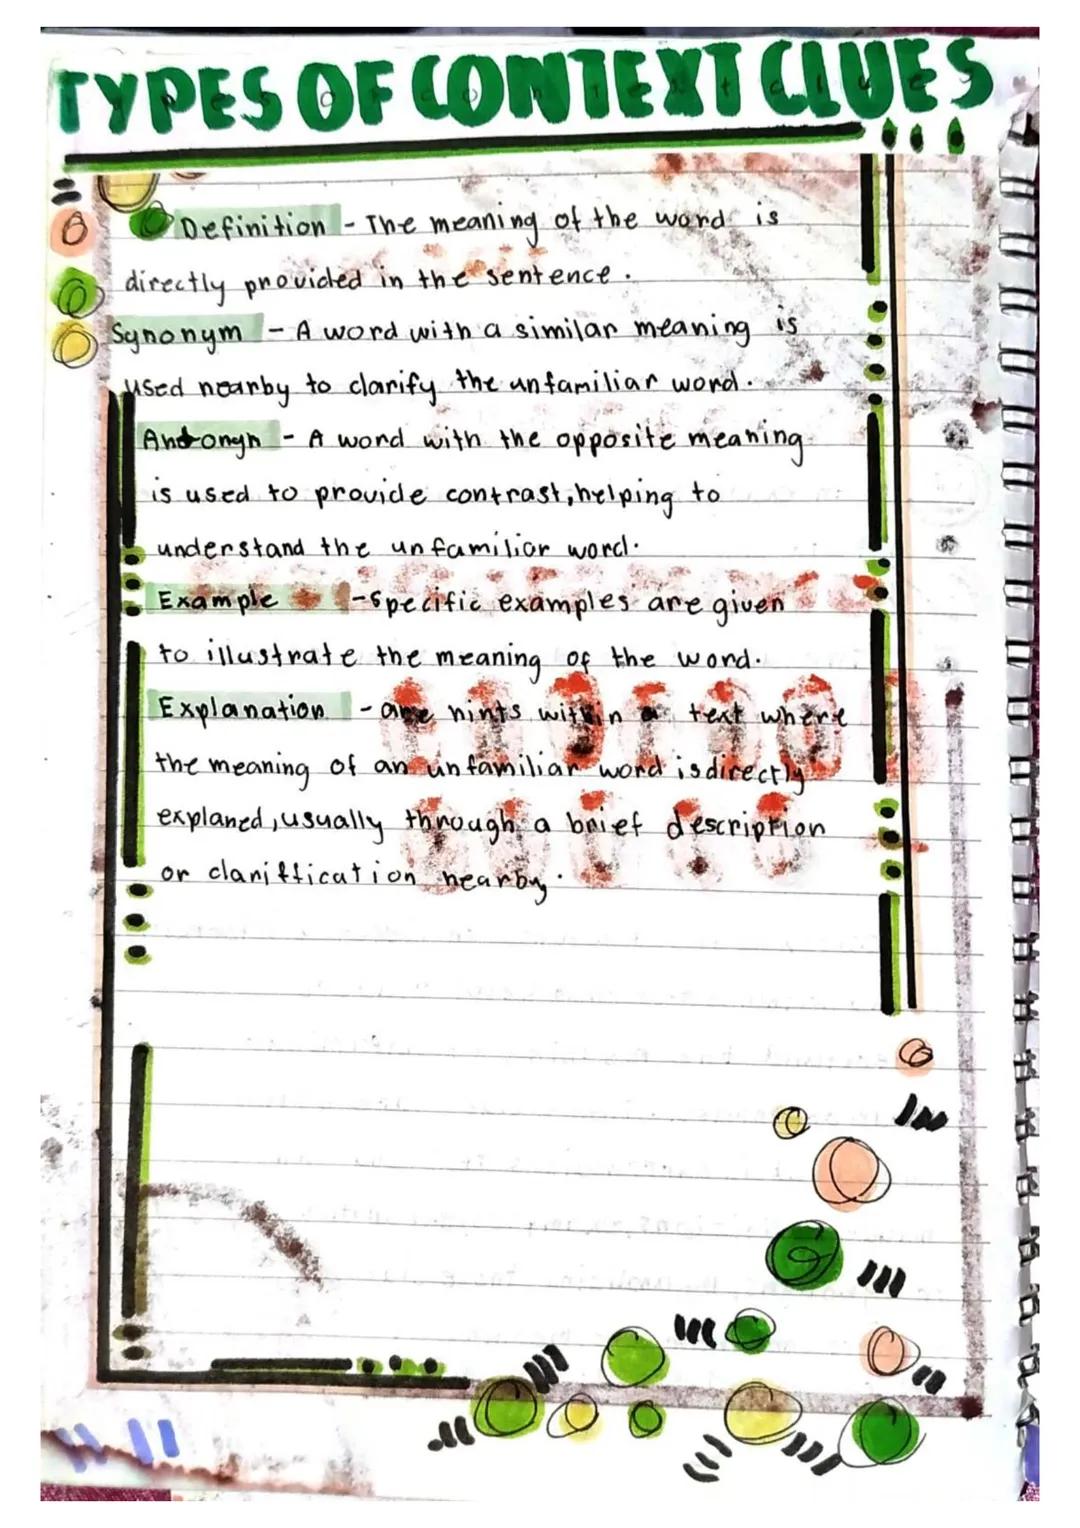 TYPES OF CONTEXT CLUES
Definition - The meaning of the word is
directly provided in the sentence.
Synonym - A word with a similar meaning is
used nearby to clarify the unfamiliar word.
Antonyn - A word with the opposite meaning
is used to provide contrast, helping to
understand the unfamiliar word.
Example - Specific examples are given
to illustrate the meaning of the word.
Explanation - are hints within a text where
the meaning of an unfamiliar word is directly
explaned, usually through a brief description
or clariffication nearby.